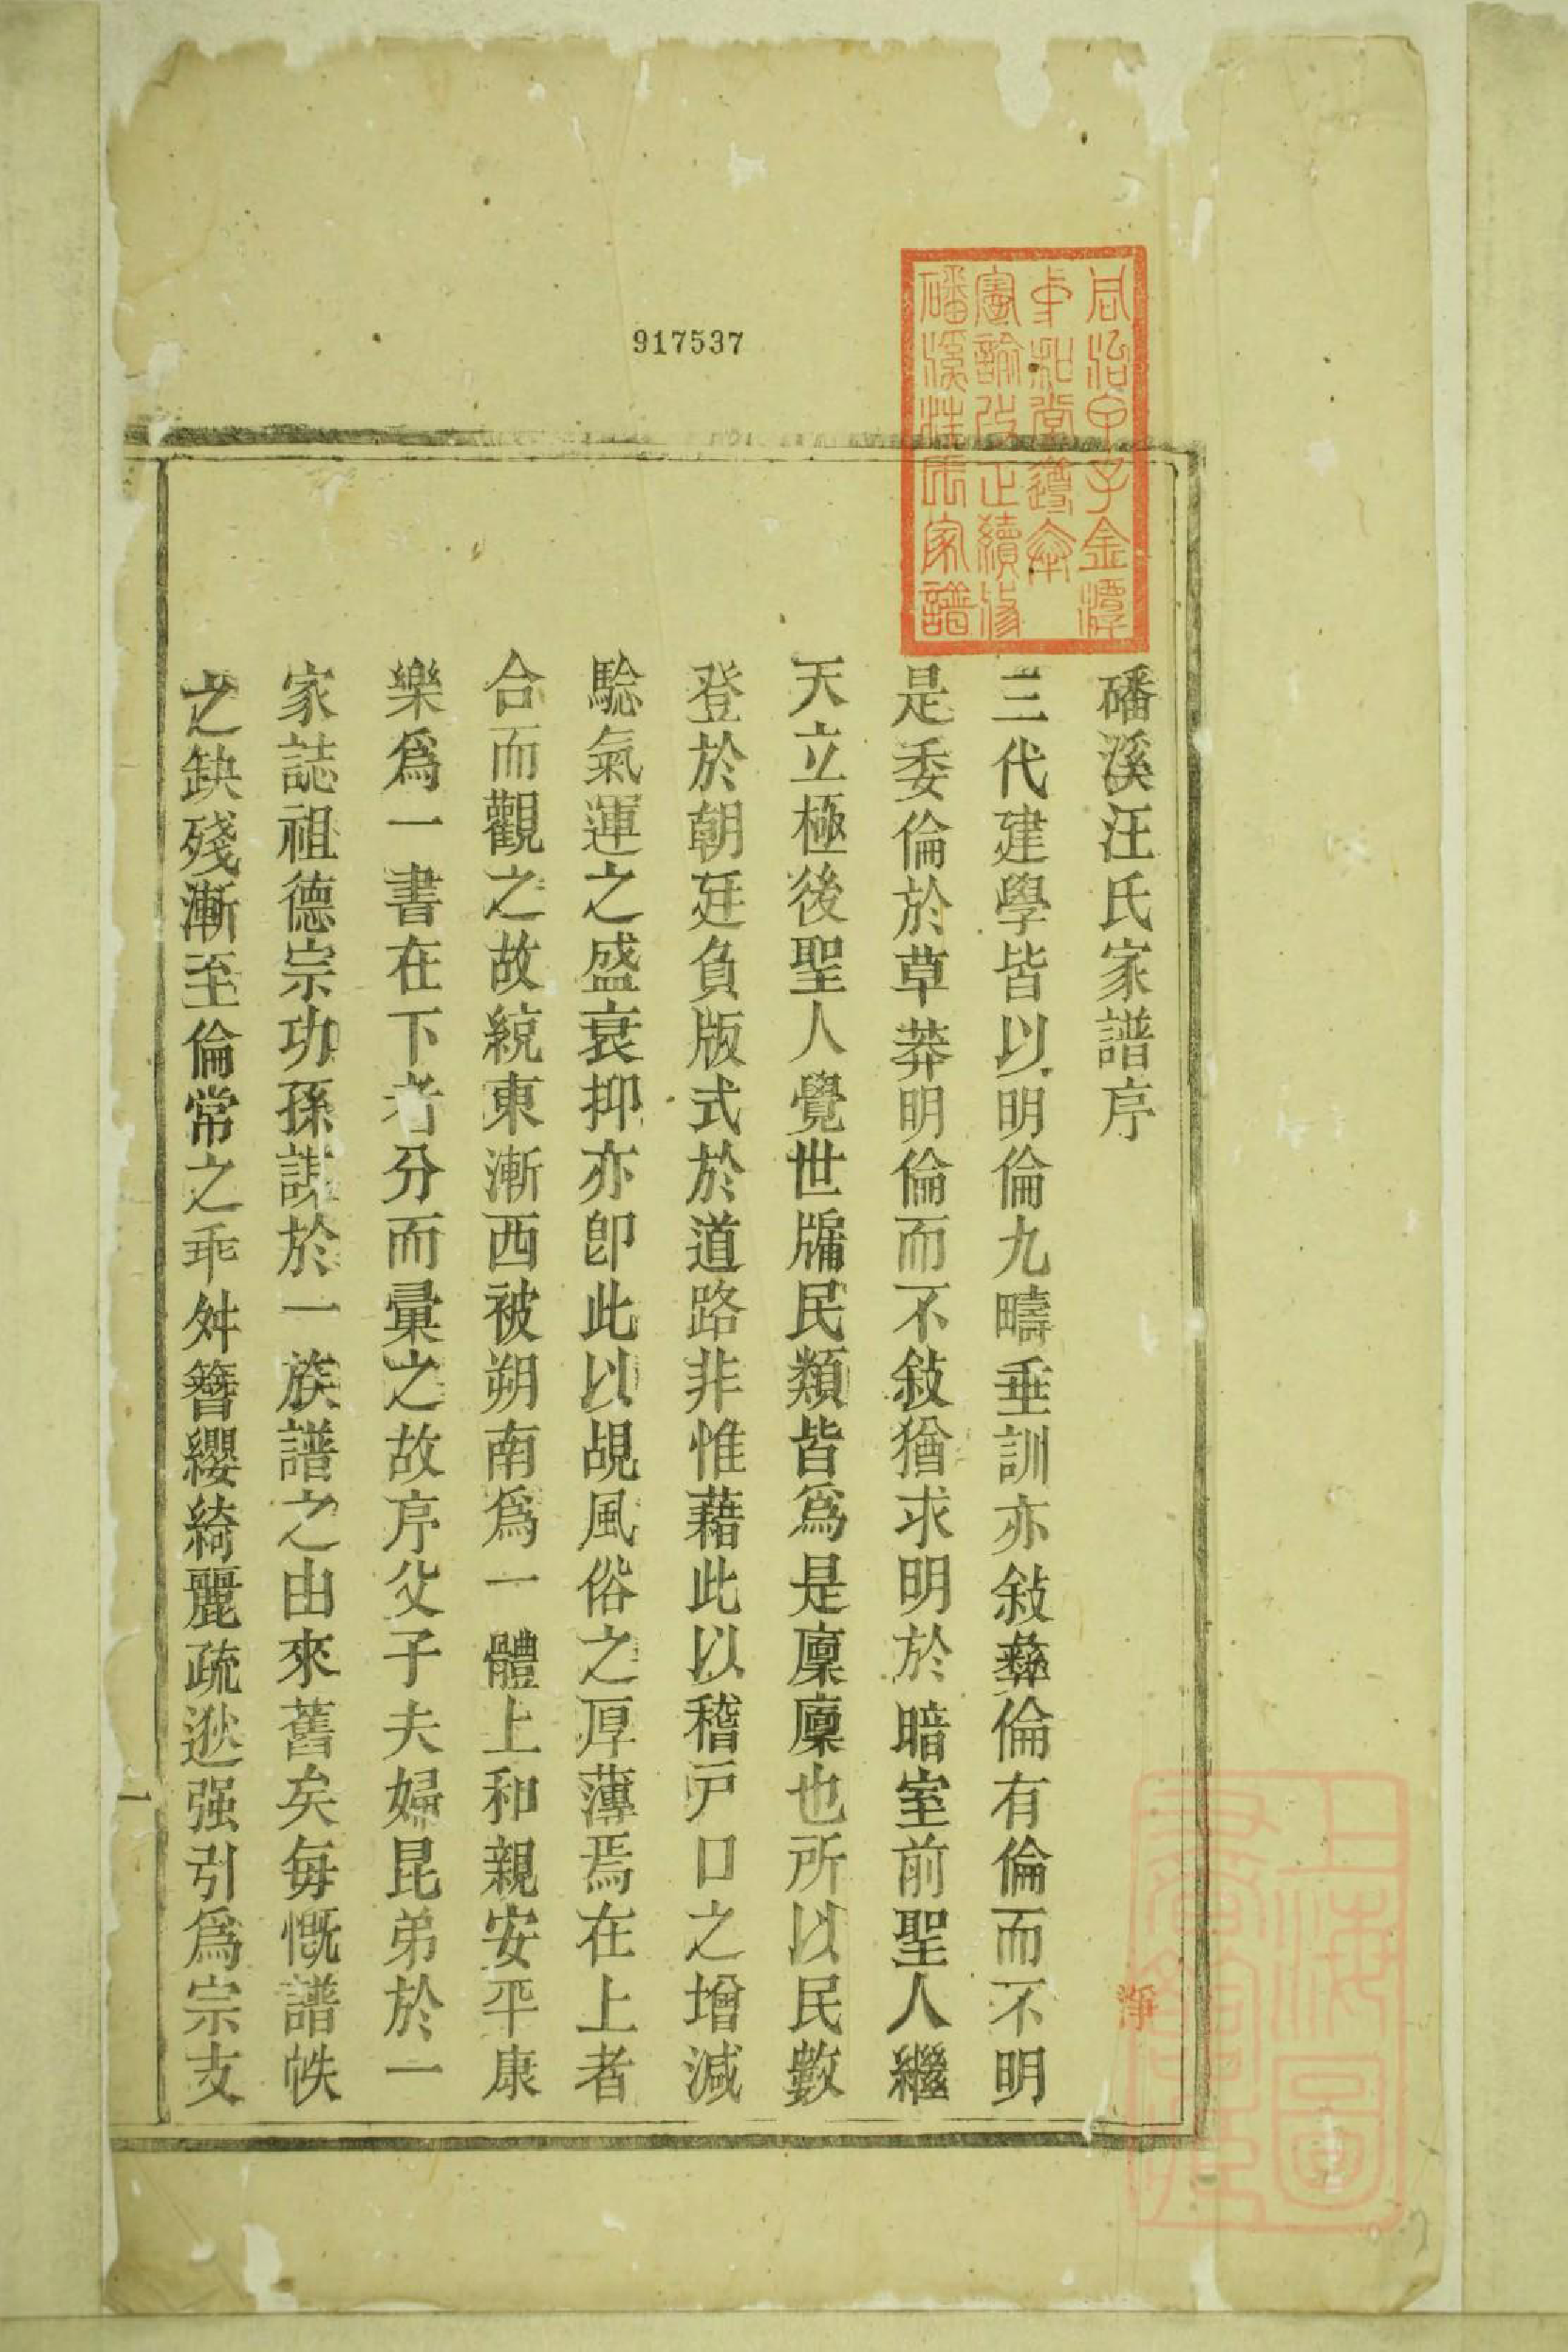 917537
磻溪汪氏家譜序
三代建學皆以明倫九疇垂訓亦敍彝倫有倫而不明
是委倫於草莽明倫而不敍猶求明於暗室前聖人繼
天立極後聖人覺世牖民類皆爲是廩廩也所以民數
登於朝廷負版式於道路非惟藉此以稽戸口之增減
騐氣運之盛衰抑亦卽此以覘風俗之厚薄焉在上者
合而觀之故統東漸西被朔南爲一體上和親安平康
樂爲一書在下者分而彙之故序父子夫婦昆弟於一
家誌祖德宗功孫謀於一族譜之由來舊矣每慨譜帙
之缺殘漸至倫常之乖舛簪纓綺麗疏逖强引爲宗支
一
同治甲子金潭
堂遵奉
憲諭改正續修
磻溪汪氏家譜
淨
上海圖
書館藏